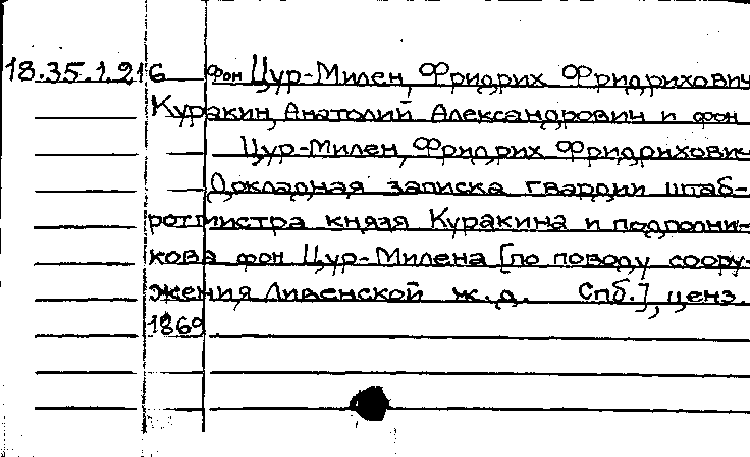 18.35.1.216 фон Цур-Милен, Фридрих Фридрихович
Куракин, Анатолий Александрович и фон
Цур-Милен, Фридрих Фридрихович
Докладная записка гвардии штаб-
ротмистра князя Куракина и подполни-
кова фон Цур-Милена [по поводу соору-
жения Ливенской ж.д. Спб.], ценз.
1869